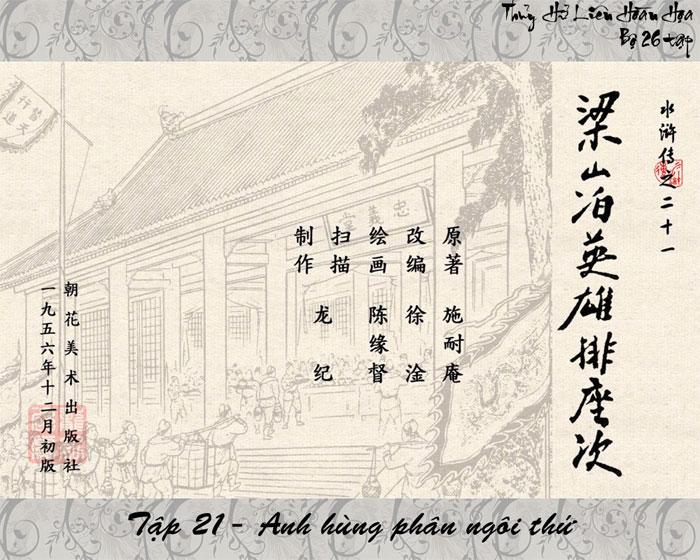 Thủy Hử Liên Hoàn Họa
Bộ 26 tập
水浒传之二十一
梁山泊英雄排座次
原著 施耐庵
改编 徐淦
绘画 陈缘督
扫描 龙纪
制作
朝花美术出版社
一九五六年十二月初版
忠義堂
替天行道
Tập 21 - Anh hùng phân ngôi thứ